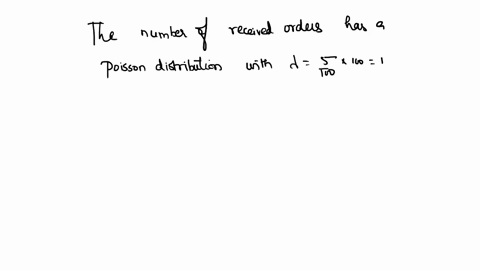 The number of received orders has a
Poisson distribution with λ = 5/100 × 100 = 1